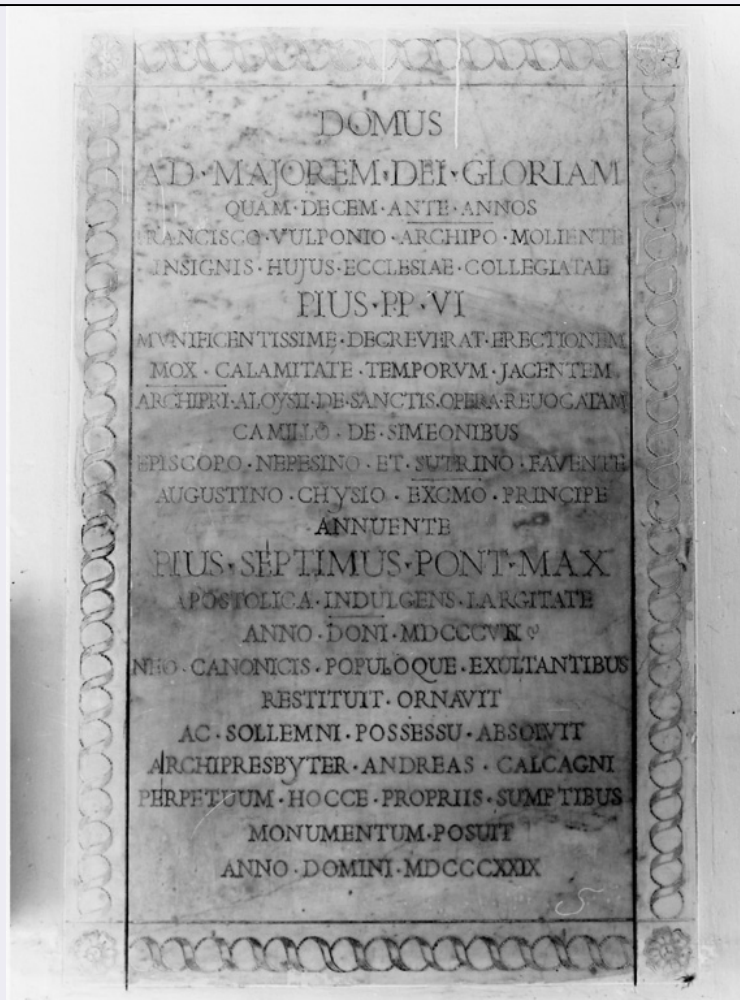 DOMUS
AD · MAJOREM · DEI · GLORIAM
QUAM · DECEM · ANTE · ANNOS
FRANCISCO · VULPONIO · ARCHIPO · MOLIENTE
INSIGNIS · HUJUS · ECCLESIAE · COLLEGIATAE
PIUS · P.P · VI
MVNIFICENTISSIME · DECREVERAT · ERECTIONEM
MOX · CALAMITATE · TEMPORVM · JACENTEM
ARCHIPRI · ALOYSII · DE · SANCTIS · OPERA · REUOCATAM
CAMILLO · DE · SIMEONIBUS
EPISCOPO · NEPESINO · ET · SUTRINO · FAVENTE
AUGUSTINO · CHYSIO · EXCMO · PRINCIPE
ANNUENTE
PIUS · SEPTIMUS · PONT · MAX
APOSTOLICA · INDULGENS · LARGITATE
ANNO · DONI ·
CANONICIS · POPULOQUE · EXULTANTIBUS
RESTITUIT · ORNAVIT
AC · SOLLEMNI · POSSESSU · ABSOLVIT
ARCHIPRESBYTER · ANDREAS · CALCAGNI
PERPETUUM · HOCCE · PROPRIIS · SUMPTIBUS
MONUMENTUM · POSUIT
ANNO · DOMINI · MDCCCXXIX